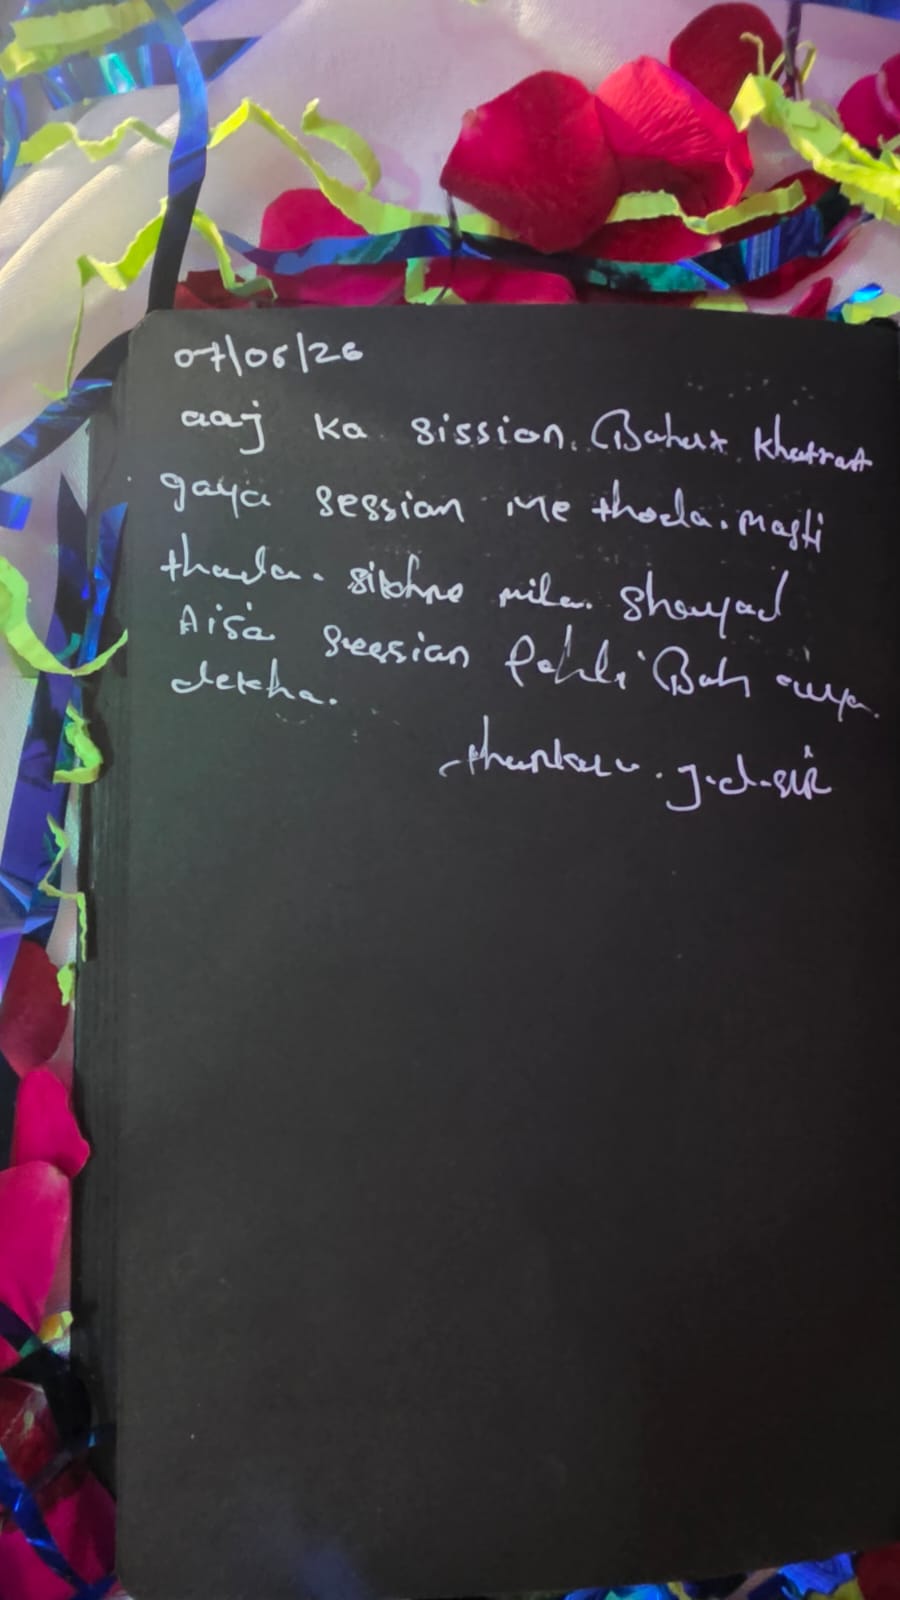 07/06/26
aaj ka sission. Bahut khatrat
gaya session me thoda. masti
thoda. sikhne mila. shayad
Aisa session Pehli Bah
dekha.
thankau. J.d-sir